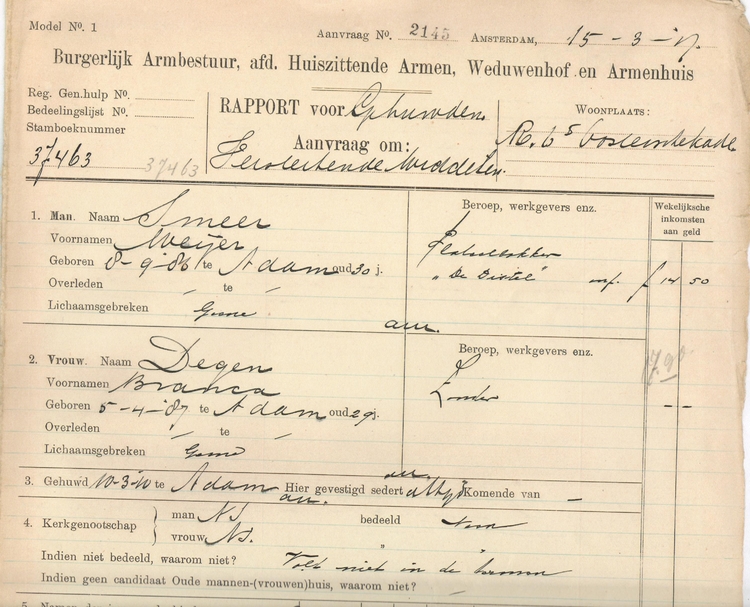 Model No. 1
Aanvraag No. 2145 Amsterdam, 15-3-17.
Burgerlijk Armbestuur, afd. Huiszittende Armen, Weduwenhof en Armenhuis
Reg. Gen.hulp No.
Bedeelingslijst No.
Stamboeknummer
37463 37463
RAPPORT voor Gehuwden.
Aanvraag om:
Versterkende Middelen.
WOONPLAATS:
Oosteindekade
1. Man. Naam Smeer
Voornamen Meijer
Geboren 8-9-86 te Adam oud 30 j.
Overleden te
Lichaamsgebreken Geene
Beroep, werkgevers enz.
"De Distel"
Wekelijksche inkomsten aan geld
f 14 50
17.90
2. Vrouw. Naam Degen
Voornamen Branca
Geboren 5-4-'87 te Adam oud 29 j.
Overleden te
Lichaamsgebreken Geene
Beroep, werkgevers enz.
Zonder
3. Gehuwd 10-3-10 te Adam Hier gevestigd sedert altijd Komende van -
4. Kerkgenootschap
man N.I. bedeeld Neen
vrouw N.I. " "
Indien niet bedeeld, waarom niet? Valt niet in de termen
Indien geen candidaat Oude mannen-(vrouwen)huis, waarom niet?